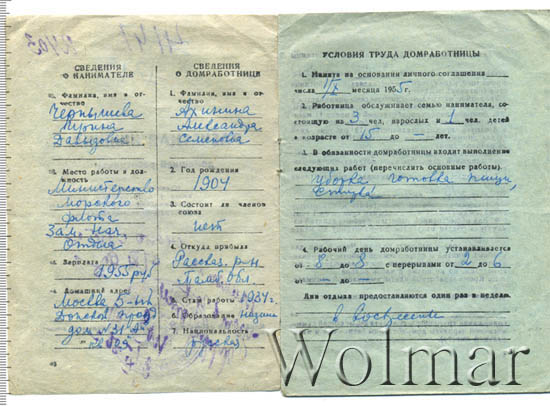 СВЕДЕНИЯ
О НАНИМАТЕЛЕ
1. Фамилия, имя и от-
чество
Чернышева
Ирина
Давыдовна
2. Место работы и дол-
жность
Министерство
Морского
флота
Зам. нач.
Отдела
3. Зарплата
1.955 руб
4. Домашний адрес
Москва
Донской
дом № 31
СВЕДЕНИЯ
О ДОМРАБОТНИЦЕ
1. Фамилия, имя и от-
чество
Александра
Семеновна
2. Год рождения
1904
3. Состоит ли членом
союза
нет
4. Откуда прибыла
Рассказ. р-н
Тамб. обл.
5. Стаж работы с 1934 г.
6. Образование
7. Национальность
русская
УСЛОВИЯ ТРУДА ДОМРАБОТНИЦЫ
1. Нанята на основании личного соглашения
числа месяца 1955 г.
2. Работница обслуживает семью нанимателя, со-
стоящую на 3 чел. взрослых и 1 чел. детей
в возрасте от 15 до — лет.
3. В обязанности домработницы входит выполнение
следующих работ (перечислить основные работы).
уборка готовка пищи,
стирка
4. Рабочий день домработницы устанавливается
от 8 до 8 с перерывами от 2 до 6
от — до —
Дни отдыха предоставляются один раз в неделю
в воскресение
Wolmar